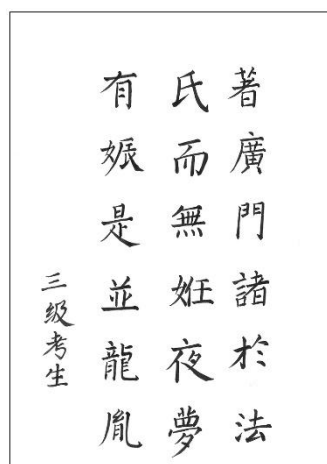 著廣門諸於法
氏而無姙夜夢
有娠是並龍胤
三级考生